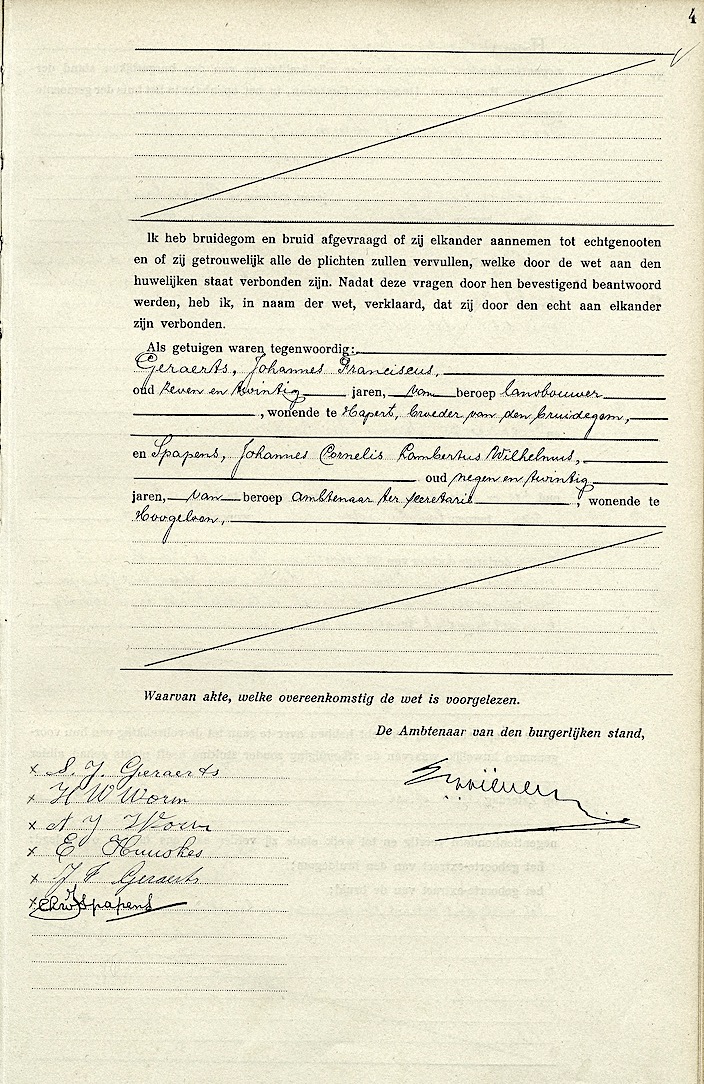 4
Ik heb bruidegom en bruid afgevraagd of zij elkander aannemen tot echtgenooten
en of zij getrouwelijk alle de plichten zullen vervullen, welke door de wet aan den
huwelijken staat verbonden zijn. Nadat deze vragen door hen bevestigend beantwoord
werden, heb ik, in naam der wet, verklaard, dat zij door den echt aan elkander
zijn verbonden.
Als getuigen waren tegenwoordig:
Geraerts, Johannes Franciscus,
oud zeven en twintig jaren, van beroep landbouwer
, wonende te Hapert, broeder van den bruidegom,
en Spapens, Johannes Cornelis Lambertus Wilhelmus,
oud negen en twintig
jaren, van beroep ambtenaar ter secretarie , wonende te
Hoogeloon,
Waarvan akte, welke overeenkomstig de wet is voorgelezen.
De Ambtenaar van den burgerlijken stand,
x S. J. Geraerts
x H W Worm
x A J Worm
x E Huuskes
x J F Geraerts
x Spapens